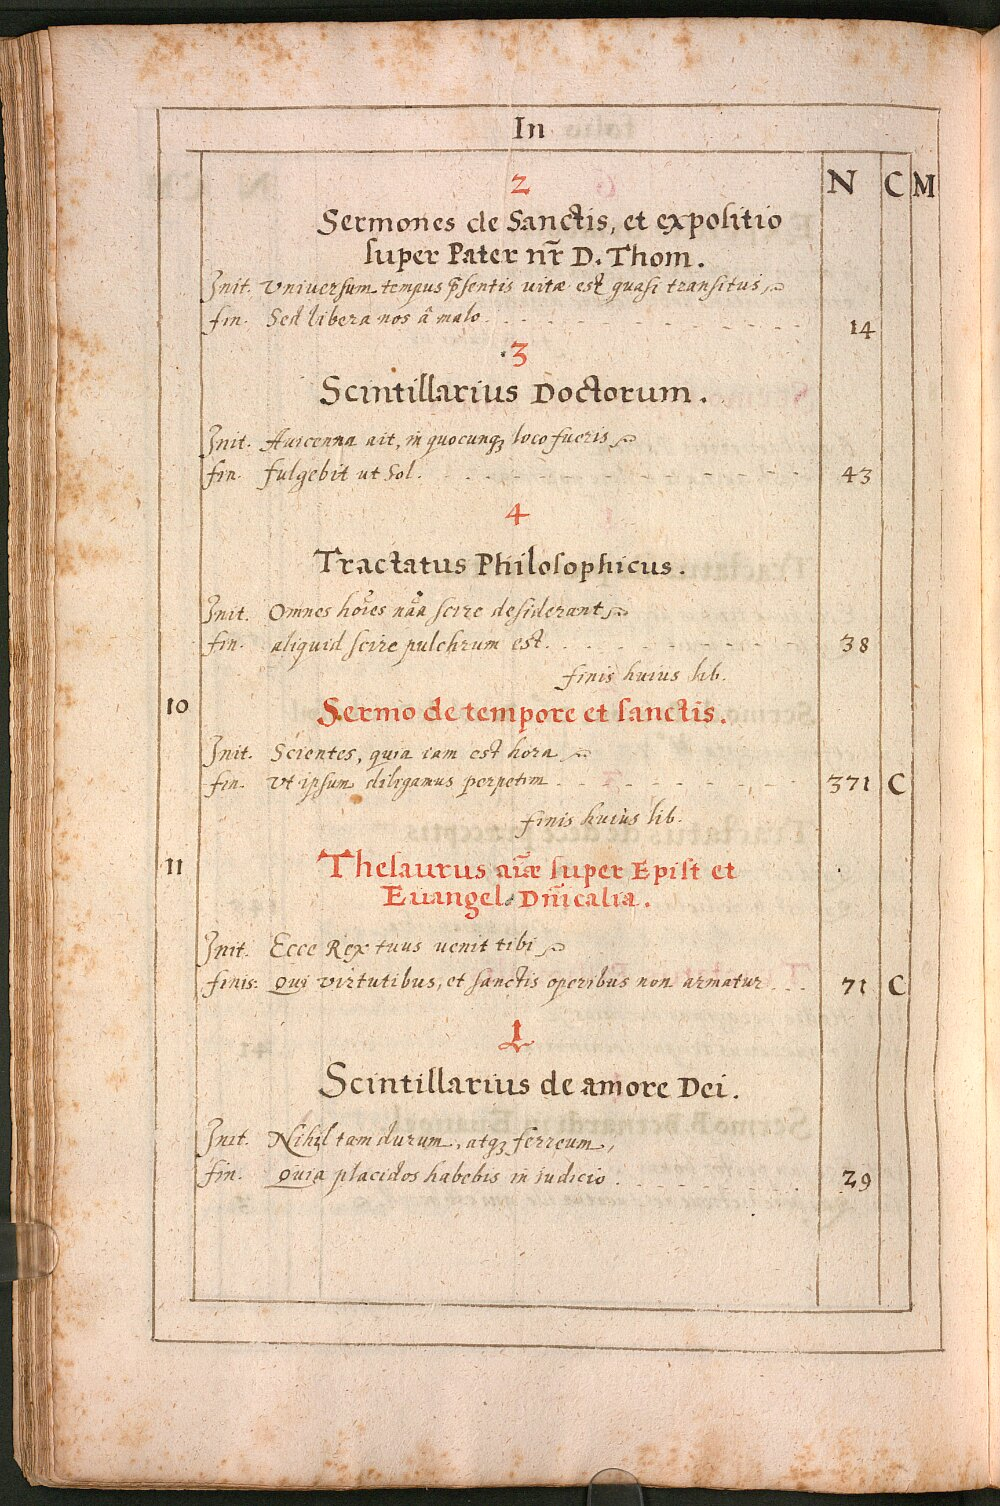 In
N C M
2
Sermones de Sanctis, et expositio
super Pater nr̃ D. Thom.
Init. Universum tempus p̃sentis vitæ est quasi transitus
fin. Sed libera nos â malo.
14
3
Scintillarius Doctorum.
Init. Auicenna ait, in quocunqꝫ loco fueris
fin. fulgebit ut Sol.
43
4
Tractatus Philosophicus.
Init. Omnes hoı̃es nãa scire desiderant
fin. aliquid scire pulchrum est.
38
finis huius lib.
10 Sermo de tempore et sanctis.
Init. Scientes, quia iam est hora
fin. Vt ipsum diligamus perpetim
371 C
finis huius lib.
11 Thesaurus aıæ̃ super Epist et
Euangel. Dnĩcalia.
Init. Ecce Rex tuus uenit tibi
finis: Qui virtutibus, et sanctis operibus non armatur
71 C
1
Scintillarius de amore Dei.
Init. Nihil tam durum, atqꝫ ferreum,
fin. Quia placidos habebis in iudicio.
29